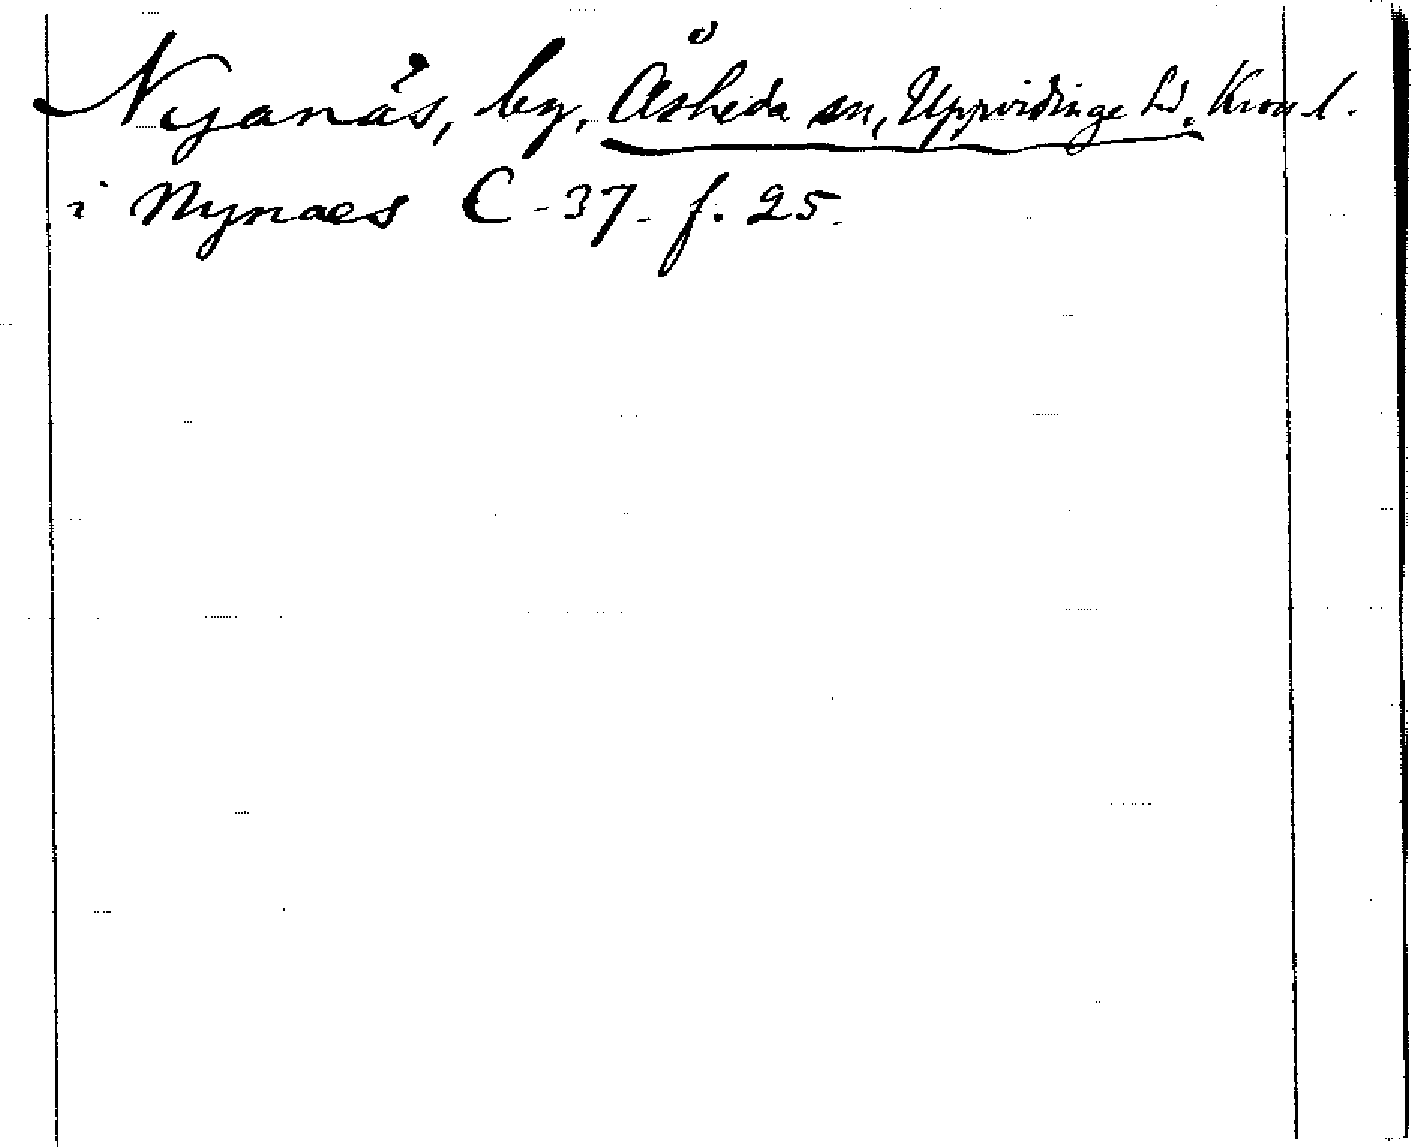 Nyanäs, by, Åsheda sn, Uppvidinge hd. Kron. l.
i Nynaes C - 37 - f. 25.